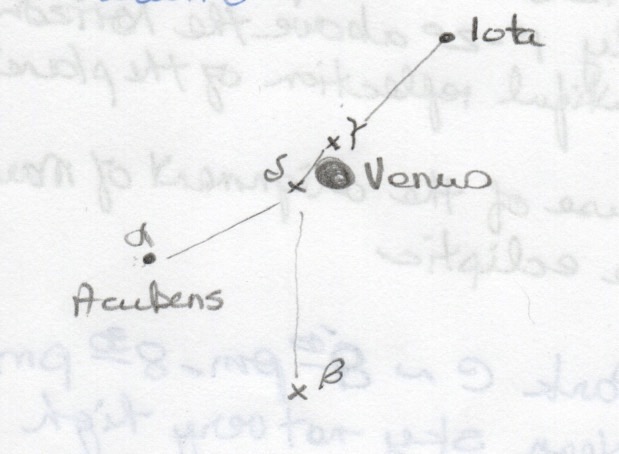 Iota
γ
δ
Venus
α
Acubens
β